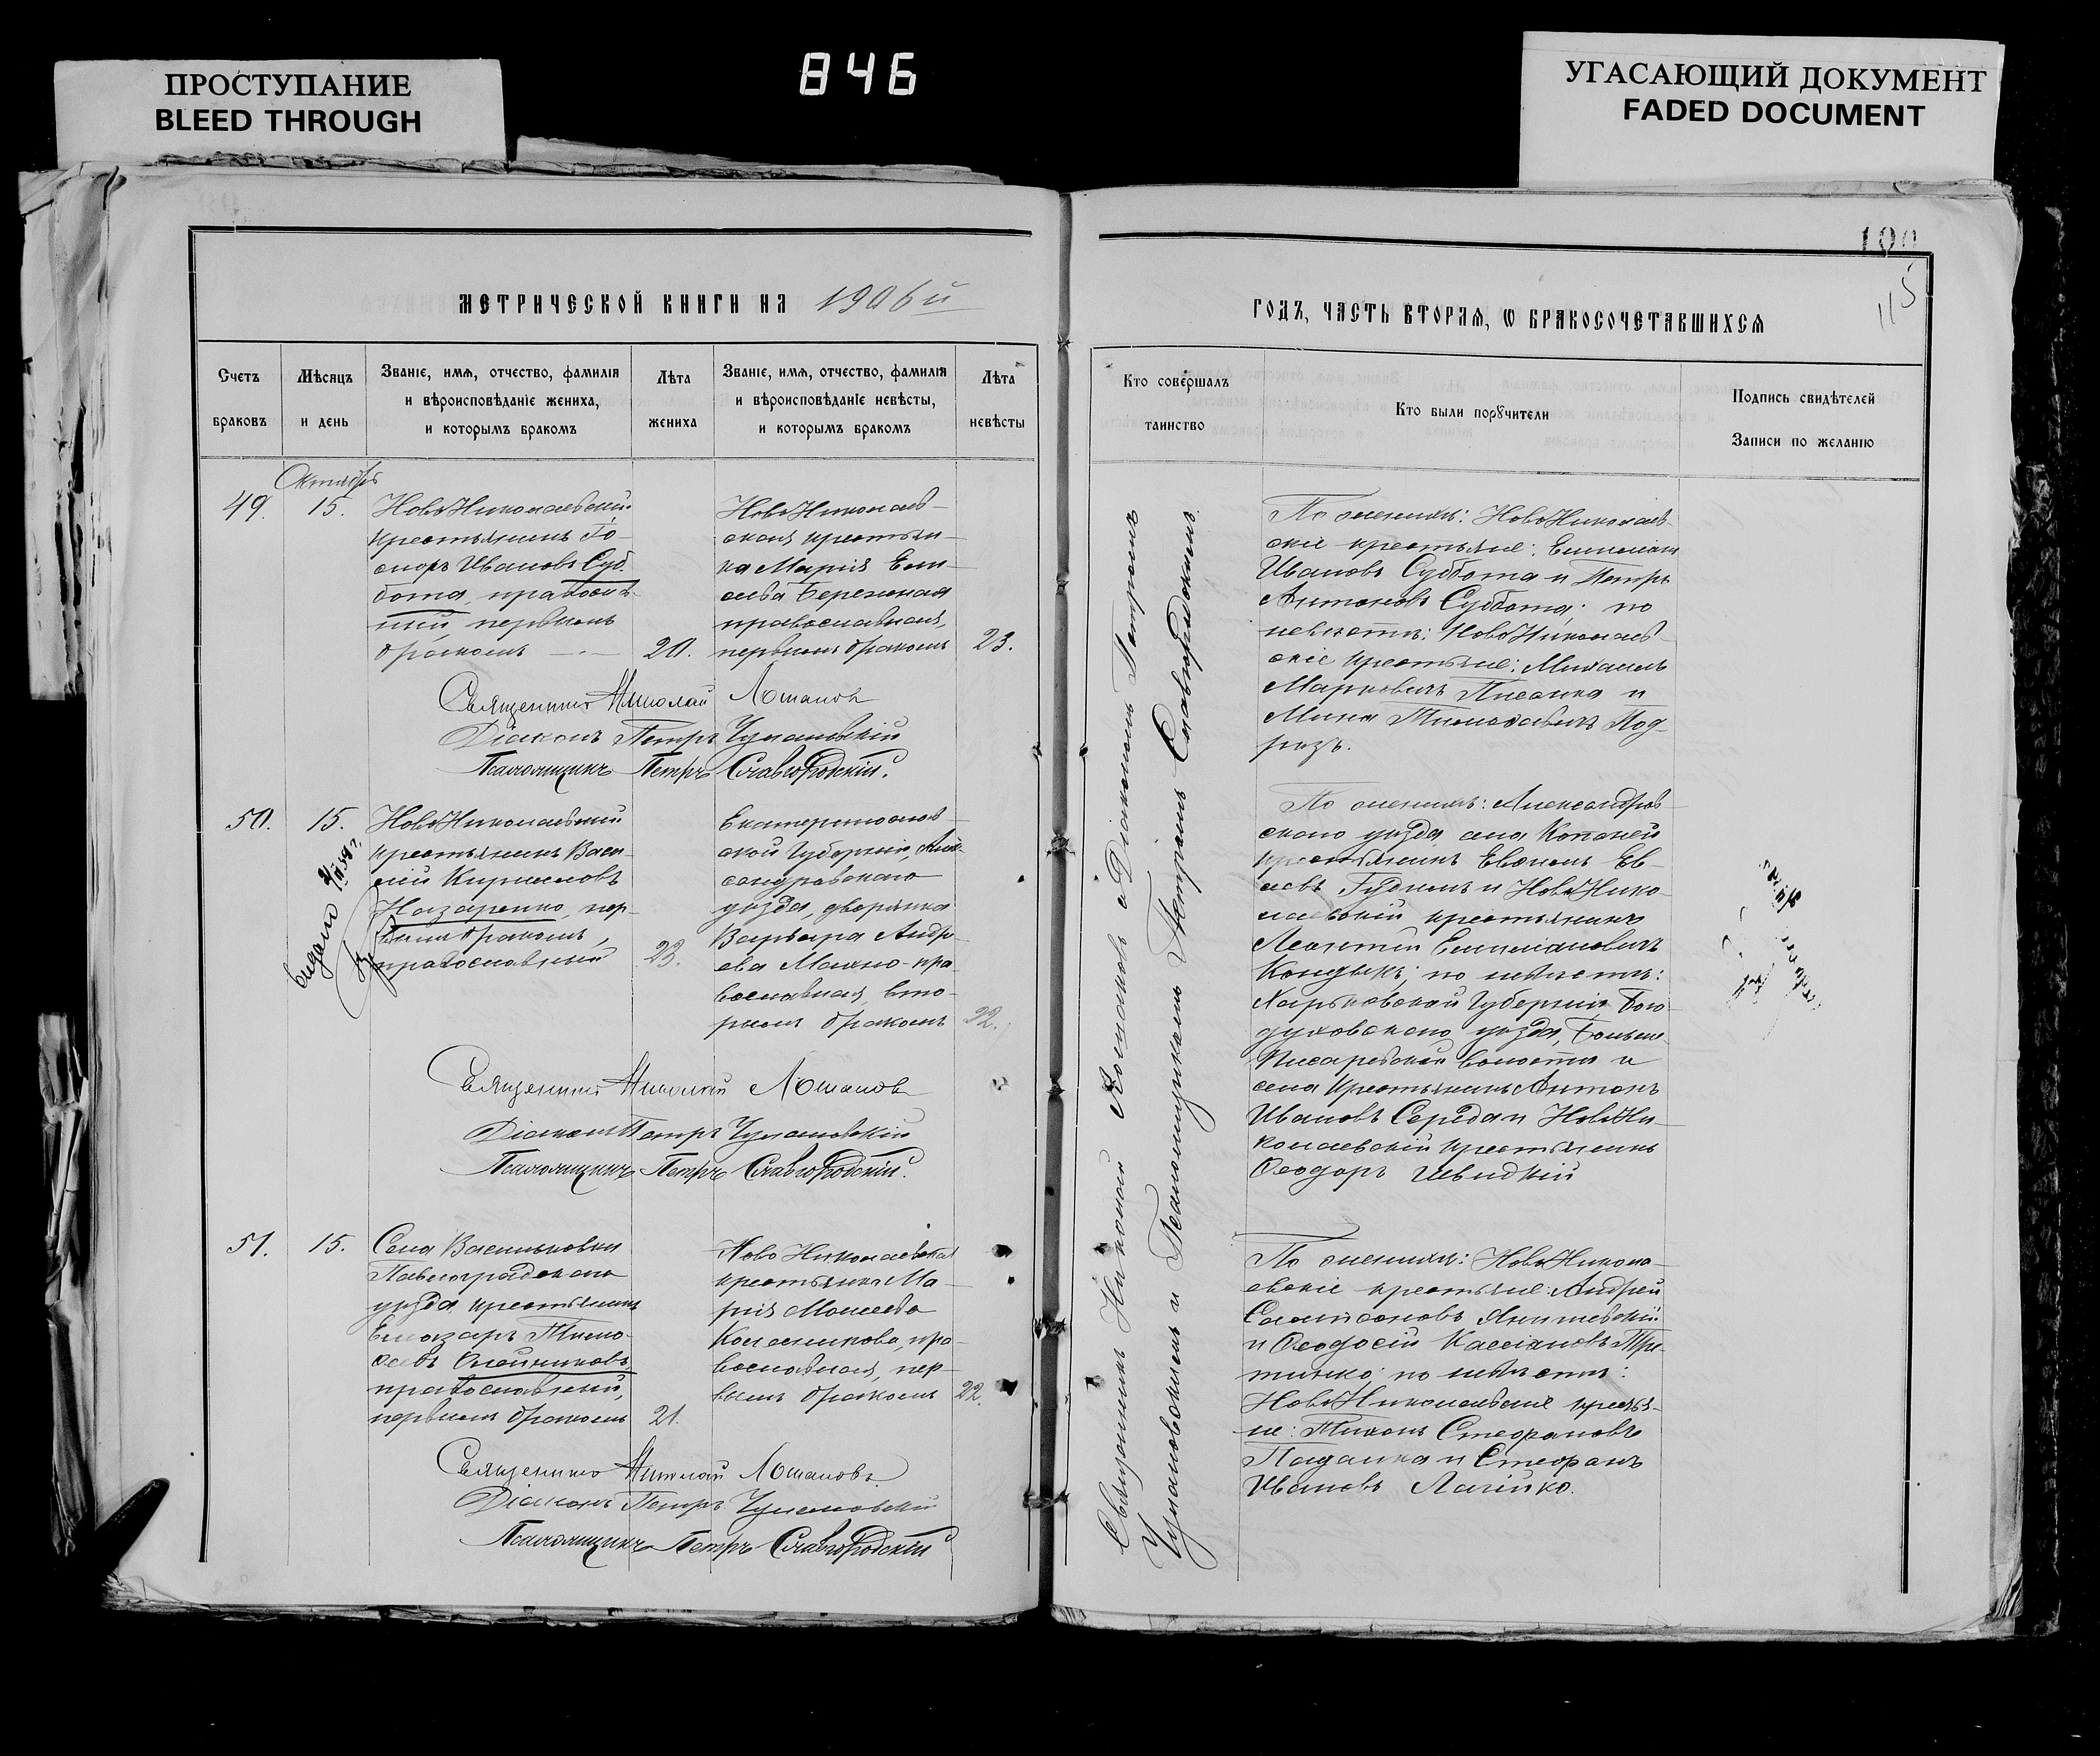 ПРОСТУПАНИЕ
BLEED THROUGH
846
УГАСАЮЩИЙ ДОКУМЕНТ
FADED DOCUMENT
МЕТРИЧЕСКОЙ КНИГИ НА 1906й
Счетъ браковъ
Мѣсяцъ и день
Званіе, имя, отчество, фамилія
и вѣроисповѣданіе жениха,
и которымъ бракомъ
Лѣта жениха
Званіе, имя, отчество, фамилія
и вѣроисповѣданіе невѣсты,
и которымъ бракомъ
Лѣта невѣсты
Октябрь
49.
15.
НовоНиколаевскій
крестьянинъ
Ивановъ Суб
бота, православ
ный, первымъ
бракомъ
20.
НовоНиколаев-
ская крестьян-
ка Марія Еми-
Бережная
православная,
первымъ бракомъ
23.
Священникъ Николай Лошаковъ
Діаконъ Петръ Чулановскій
Псаломщикъ Петръ Славгородскій.
50.
15.
Выдано
НовоНиколаевскій
крестьянинъ Васи-
лій Кирилловъ
Назаренко, пер-
вымъ бракомъ,
православный
23.
Екатеринослав-
ской Губерніи, Алек-
сандровскаго
уѣзда, дворянка
Варвара Андре-
ева Махно-пра-
вославная, вто-
рымъ бракомъ
22.
Священникъ Николай Лошаковъ
Діаконъ Петръ Чулановскій
Псаломщикъ Петръ Славгородскій.
51.
15.
Села Васильковки
Павлоградскаго
уѣзда крестьянинъ
Елеазаръ Тимо-
ѳеевъ Олейниковъ,
православный,
первымъ бракомъ
21.
Ново Николаевская
крестьянка Ма-
рія Моисеева
Колесникова, пра-
вославная, пер-
вымъ бракомъ
22.
Священникъ Николай Лошаковъ
Діаконъ Петръ Чулановскій
Псаломщикъ Петръ Славгородскій
115
ГОДЪ, ЧАСТЬ ВТОРАЯ, Ѡ БРАКОСОЧЕТАВШИХСЯ
Кто совершалъ таинство
Кто были порꙋчители
Подпись свидѣтелей
Записи по желанію
Священникъ Николай Лошаковъ съ Діакономъ Петромъ
Чулановскимъ и Псаломщикомъ Петромъ Славгородскимъ.
По женихѣ: НовоНиколаев-
скіе крестьяне: Емельянъ
Ивановъ Суббота и Петръ
Антоновъ Суббота; по
невѣстѣ: НовоНиколаев-
скіе крестьяне: Михаилъ
Марковичъ Писанка и
Мина Тимоѳеевичъ Под-
По женихѣ: Александров-
скаго уѣзда, села
крестьянинъ
и НовоНико-
лаевскій крестьянинъ
Леонтій Емельяновичъ
по невѣстѣ:
Харьковской Губерніи, Бого-
духовскаго уѣзда, Больше-
Писаревской волости и
села крестьянинъ Антонъ
Ивановъ Середа и НовоНи-
колаевскій крестьянинъ
Ѳеодоръ Швидкій
По женихѣ: НовоНикола-
евскіе крестьяне: Андрей
и Ѳеодосій Кассіановъ
по невѣстѣ:
НовоНиколаевскіе крестья-
не: Тихонъ Стефановъ
и Стефанъ
Ивановъ